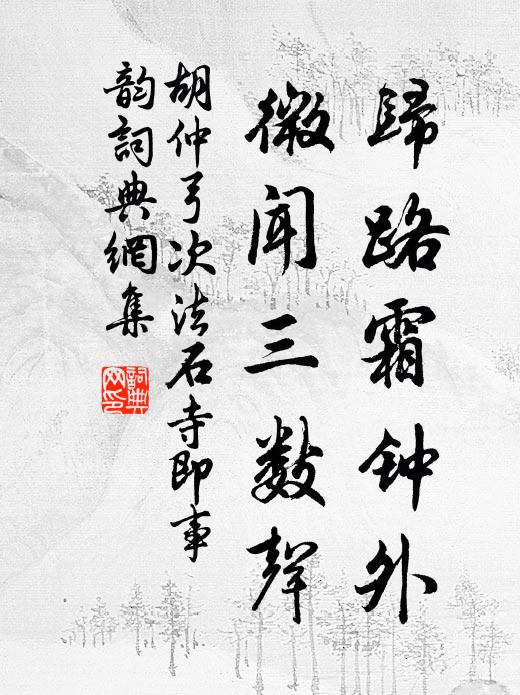 歸路霜钟外
微闻三数聲
胡仲弓次法石寺即事
韵詞典網集
詞典网印